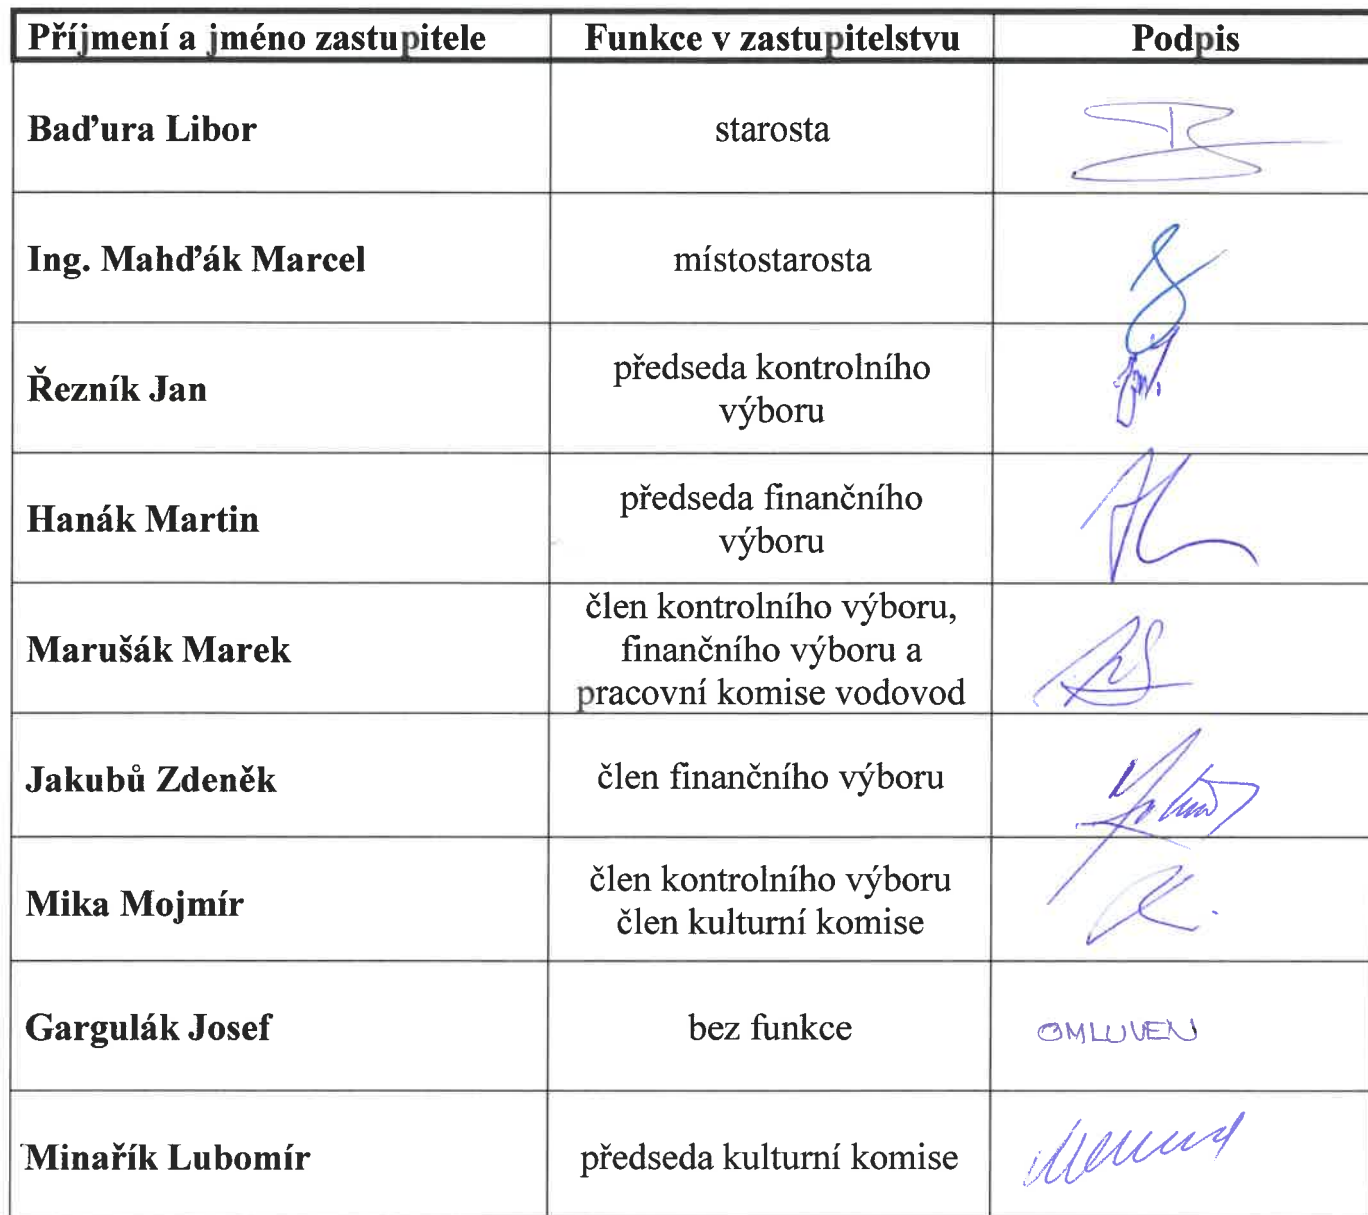 Příjmení a jméno zastupitele Funkce v zastupitelstvu Podpis
Baďura Libor starosta
Ing. Mahďák Marcel místostarosta
Řezník Jan předseda kontrolního
výboru
Hanák Martin předseda finančního
výboru
člen kontrolního výboru,
Marušák Marek finančního výboru a
pracovní komise vodovod
Jakubů Zdeněk člen finančního výboru
člen kontrolního výboru
Mika Mojmír
člen kulturní komise
Gargulák Josef bez funkce OMLUVEN
Minařík Lubomír předseda kulturní komise